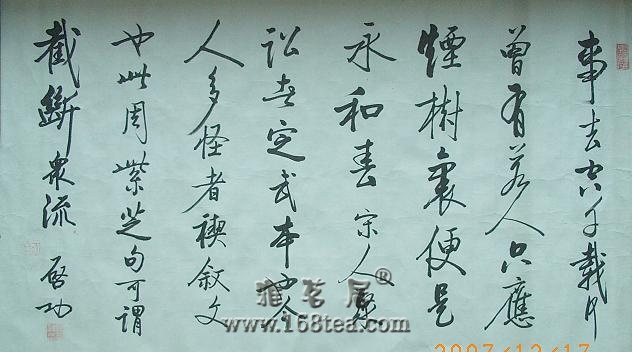 事去千載何
曾有若人只應
煙樹裏便是
永和春宋人聚
訟者定武本也今
人多怪者禊敘文
也此周紫芝句可謂
截斷衆流 啟功
雅茗居®
www.168tea.com
2007/12/17